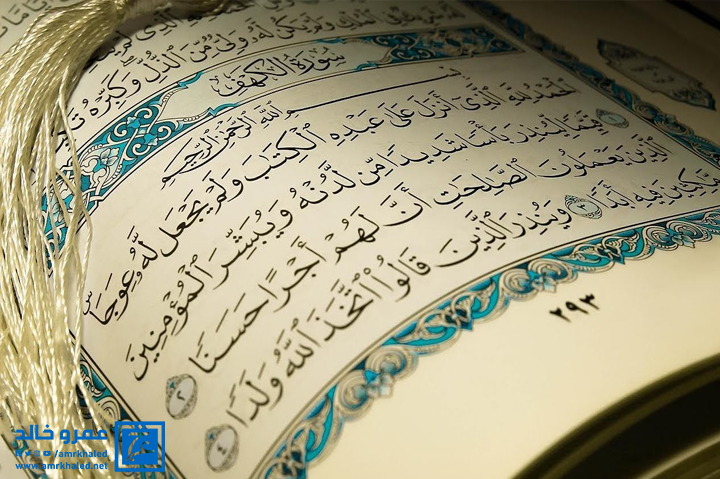 وَلَمْ يَكُن لَّهُۥ وَلِىٌّ مِّنَ ٱلذُّلِّ وَكَبِّرْهُ
سُورَةُ الكَهْفِ
بِسْمِ ٱللَّهِ ٱلرَّحْمَٰنِ ٱلرَّحِيمِ
ٱلْحَمْدُ لِلَّهِ ٱلَّذِىٓ أَنزَلَ عَلَىٰ عَبْدِهِ ٱلْكِتَٰبَ وَلَمْ يَجْعَل لَّهُۥ عِوَجَاۜ
١ قَيِّمًا لِّيُنذِرَ بَأْسًا شَدِيدًا مِّن لَّدُنْهُ وَيُبَشِّرَ ٱلْمُؤْمِنِينَ
ٱلَّذِينَ يَعْمَلُونَ ٱلصَّٰلِحَٰتِ أَنَّ لَهُمْ أَجْرًا حَسَنًا ٢
مَّٰكِثِينَ فِيهِ أَبَدًا ٣ وَيُنذِرَ ٱلَّذِينَ قَالُوا۟ ٱتَّخَذَ ٱللَّهُ وَلَدًا ٤
٢٩٣
عمرو خالد
amrkhaled
www.amrkhaled.net